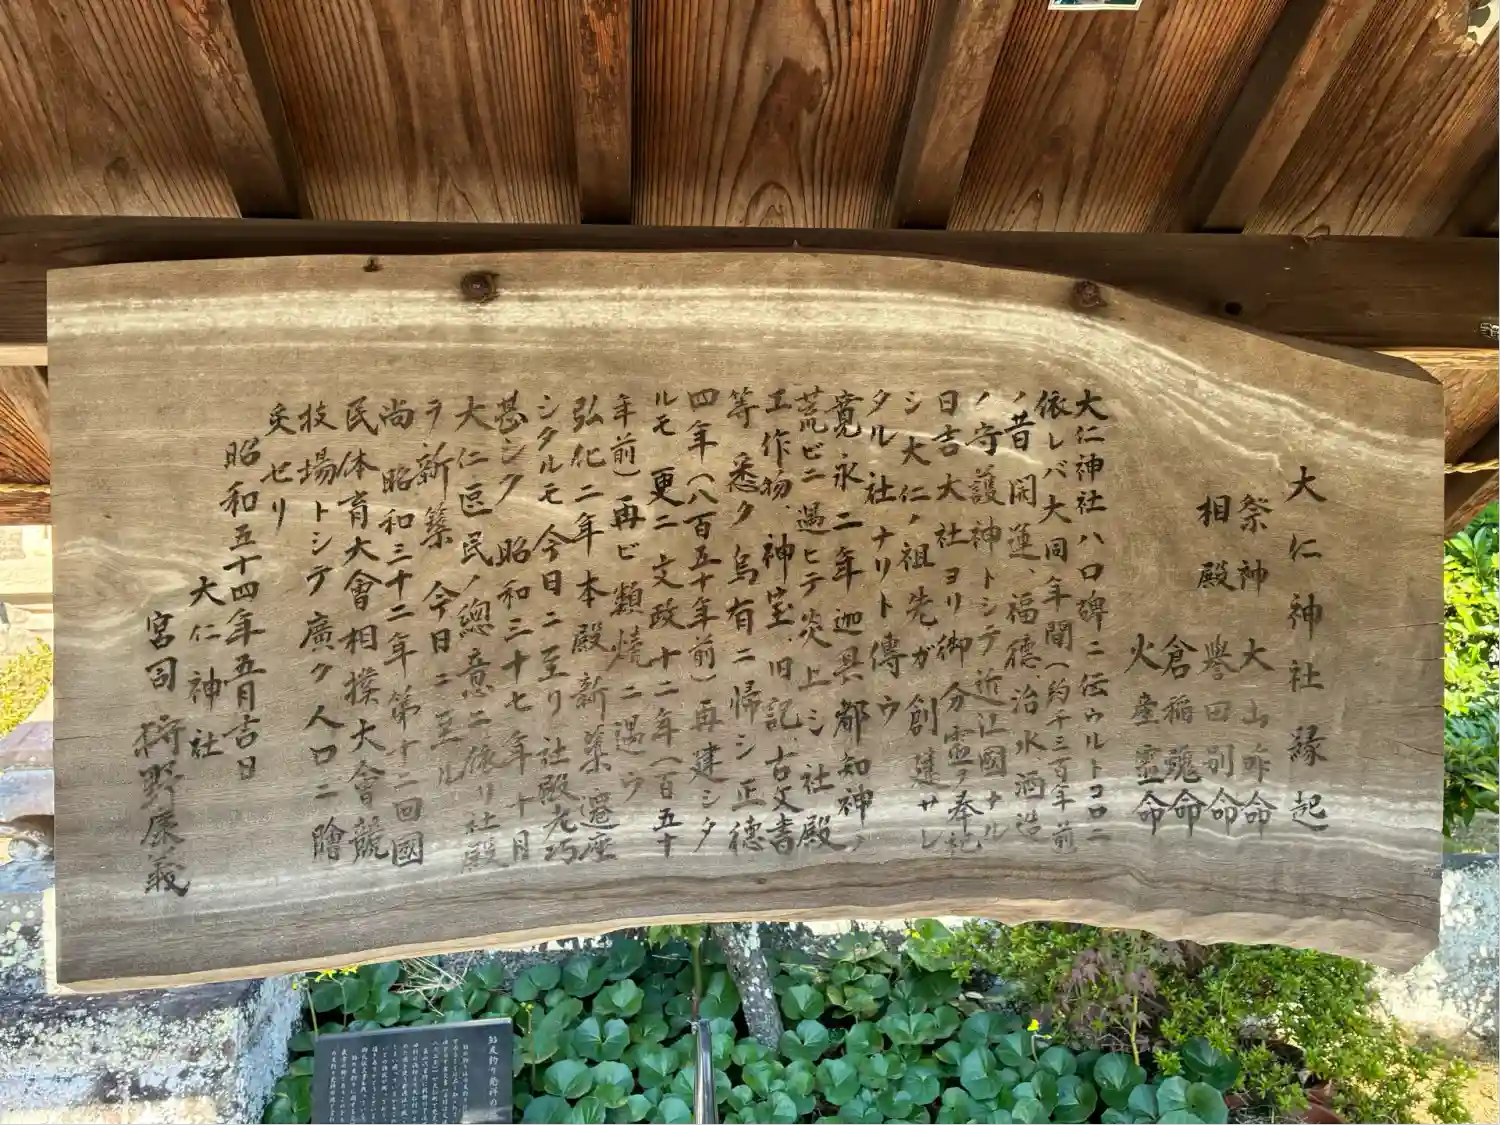 大仁神社縁起
祭神 大山咋命
相殿 譽田別命
倉稲魂命
火産霊命
大仁神社ハ口碑ニ伝ウルトコロニ
依レバ大同年間(約千三百年前
ノ昔 開運、福德、治水酒造
ノ守護神トシテ近江國ナル
日吉大社ヨリ御分霊ヲ奉祀
シ大仁ノ祖先ガ創建サレ
タル社ナリト傳ウ
寛永二年迦具都知神ノ
荒ビニ遇ヒテ炎上シ社殿
工作物、神宝、旧記、古文書
等 悉ク烏有ニ帰シ正德
四年(八百五十年前)再建シタ
ルモ 更ニ文政十二年(百五十
年前)再ビ類燒ニ遇ウ
弘化二年本殿新築遷座
シタルモ今日ニ至リ社殿老朽
甚シク 昭和三十七年十月
大仁區民ノ總意ニ依リ社殿
ヲ新築 今日ニ至ル
尚昭和三十二年第十二回國
民体育大會相撲大會競
技場トシテ廣ク人口ニ膾
炙セリ
昭和五十四年五月吉日
大仁神社
宮司 狩野康義